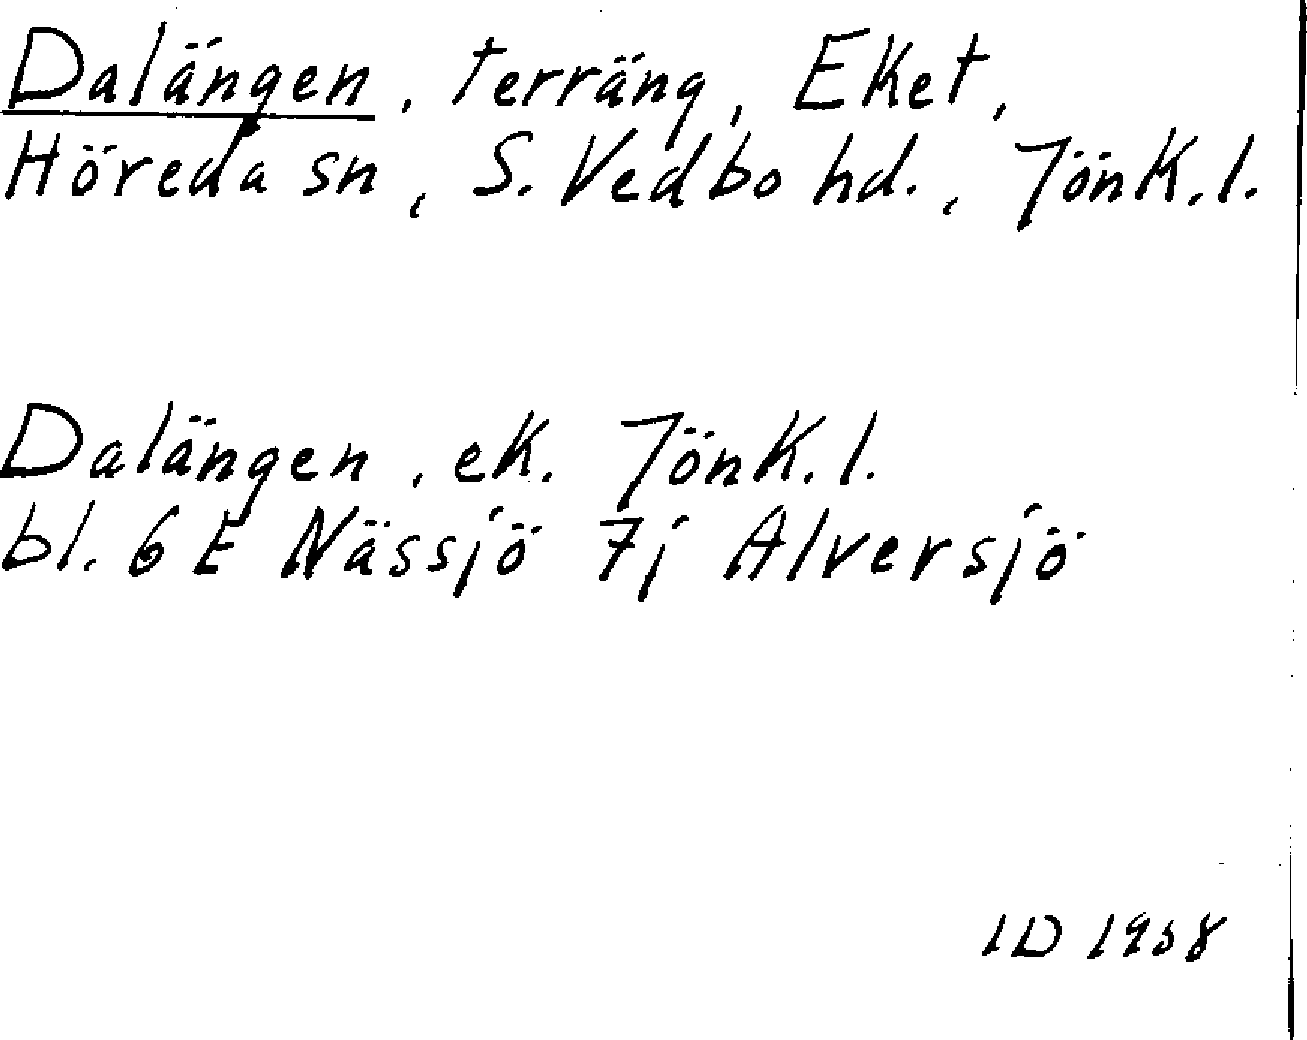 Dalängen, terräng, Eket,
Höreda sn, S. Vedbo hd., Jönk. l.
Dalängen, ek. Jönk. l.
bl. 6 E Nässjö 7j Alversjö
ID 1958